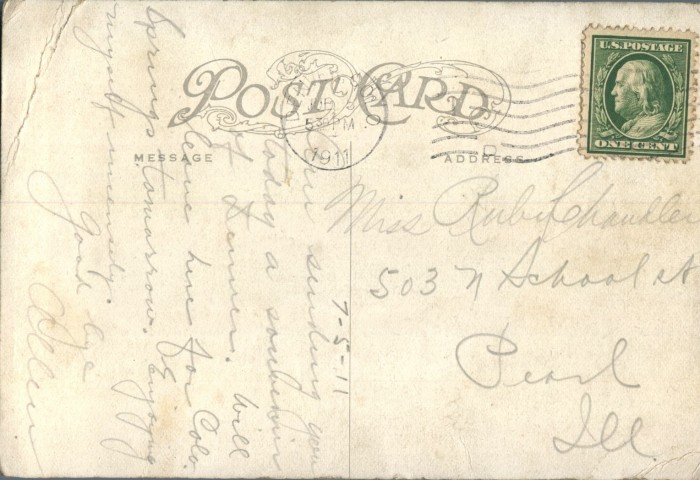 POST CARD
MESSAGE
ADDRESS
U.S. POSTAGE
ONE CENT
5 PM
1911
7-5-11
Am sending you
today a souvenir
of Denver. Will
leave here for Colo.
Springs tomorrow. Enjoying
myself immensely.
Good bye
Miss Ruby Chandler
503 N School st
Pearl
Ill